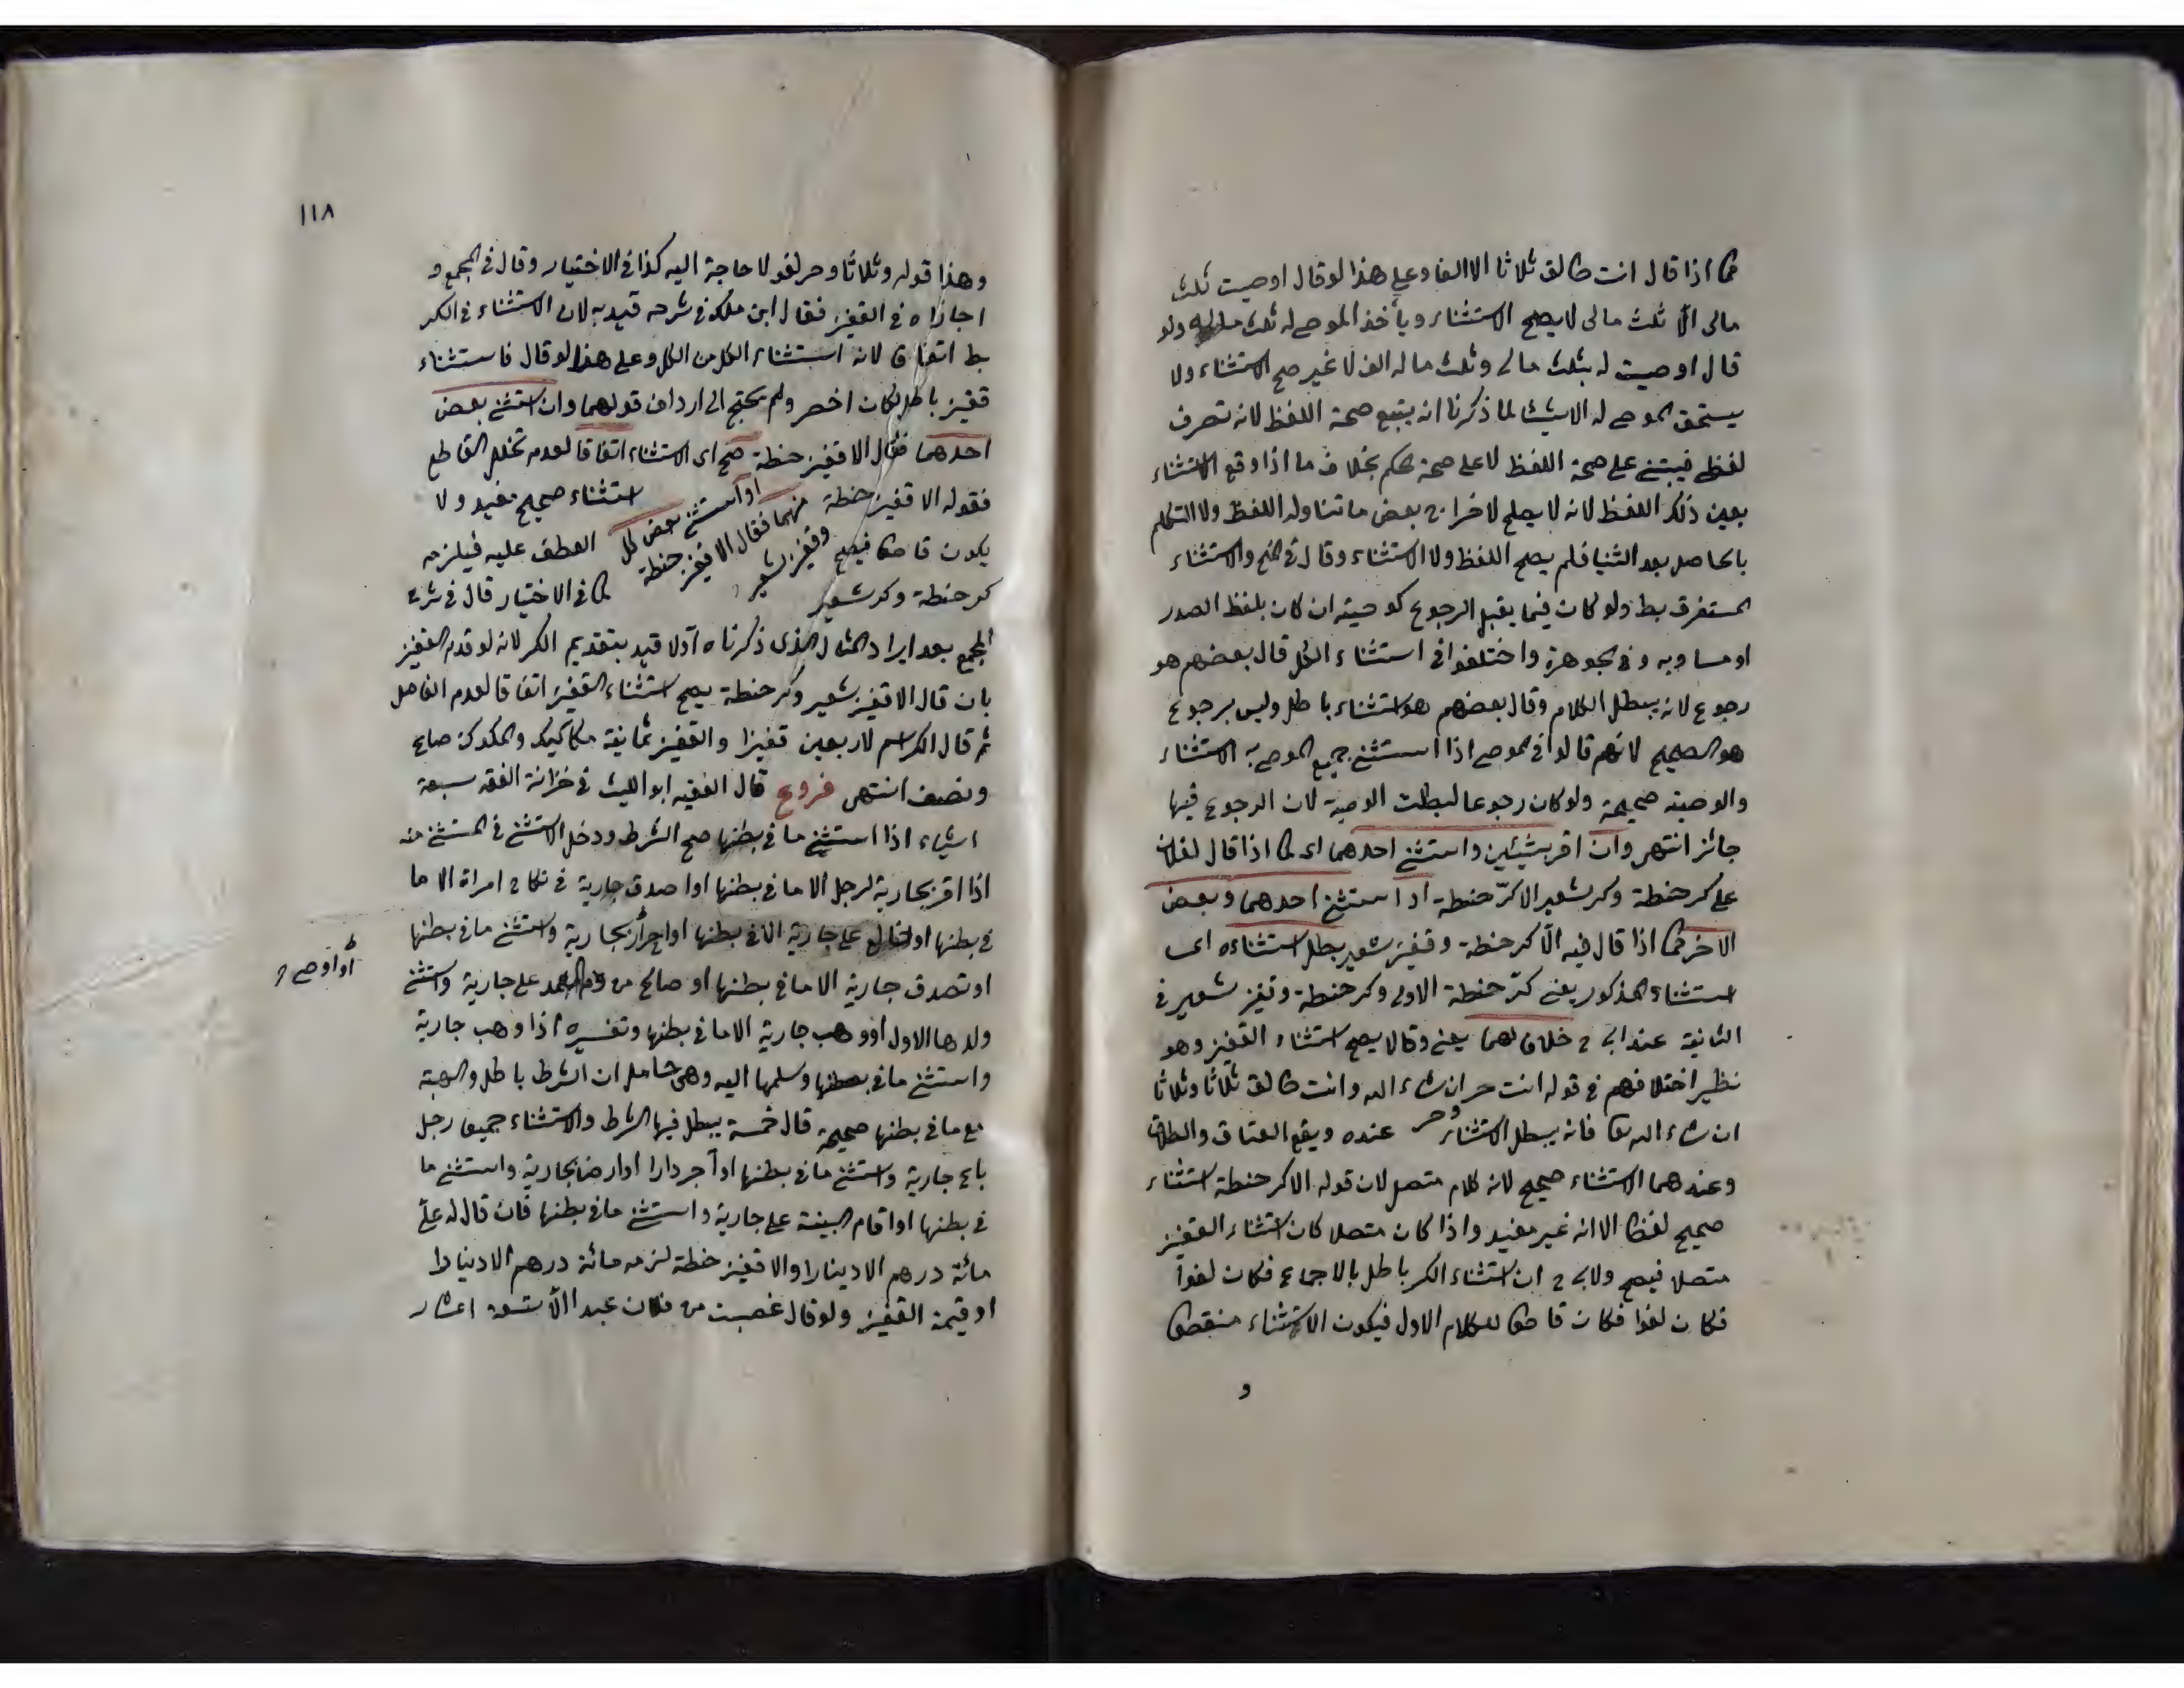 كما اذا قال انت طالق ثلاثا الا الفا وعلى هذا لو قال اوصيت ثلث
مالى الا ثلث مالى لا يصح الاستثناء ويأخذ الموصى له ثلث ماله ولو
قال اوصيت له بثلث مالى وثلث ماله الف لا غير صح الاستثناء ولا
يستحق الموصى له الاستثناء لما ذكرنا انه يتبع صحة اللفظ لانه تصرف
لفظى فيبتنى على صحة اللفظ لا على صحة الحكم بخلاف ما اذا وقع الاستثناء
بعين ذلك اللفظ لانه لا يصلح لاخراج بعض ما تناوله اللفظ ولا التكلم
بالحاصل بعد الثنيا فلم يصح اللفظ ولا الاستثناء وقال فى المنح والاستثناء
المستغرق بط ولو كان فيما يقبل الرجوع كوصية ان كان بلفظ الصدر
او مساويه وفى الجوهرة واختلفوا فى استثناء الكل قال بعضهم هو
رجوع لانه يبطل الكلام وقال بعضهم هو استثناء باطل وليس برجوع
هو الصحيح لانهم قالوا فى الموصى اذا استثنى جميع الموصى به الاستثناء
والوصية صحيحة ولو كان رجوعا لبطلت الوصية لان الرجوع فيها
جائز انتهى وان اقر بشيئين واستثنى احدهما اى كما اذا قال لفلان
على كر حنطة وكر شعير الا كر حنطة او استثنى احدهما وبعض
الاخر كما اذا قال فيه الا كر حنطة وقفيز شعير بطل استثناءه اى
استثناء المذكور يعنى كر حنطة الاولى وكر حنطة وقفيز شعير فى
الثانية عند ابى ح خلافا لهما يعنى وقالا يصح استثناء القفيز وهو
نظير اختلافهم فى قوله انت حر ان شاء الله وانت طالق ثلاثا وثلاثا
ان شاء الله تعا فانه يبطل الاستثناء وحر عنده ويقع العتاق والطلاق
وعندهما الاستثناء صحيح لانه كلام متصل لان قوله الا كر حنطة استثناء
صحيح لفظا الا انه غير مفيد واذا كان متصلا كان استثناء القفيز
متصلا فيصح ولابى ح ان استثناء الكر باطل بالاجماع فكان لغوا
فكان لغوا فكان قاطعا للكلام الاول فيكون الاستثناء منقطعا
و
١١٨
وهذا قوله وثلاثا وحر لغو لا حاجة اليه كذا فى الاختيار وقال فى المجمع و
اجازاه فى القفيز فقال ابن ملك فى شرحه قيد به لان الاستثناء فى الكر
بط اتفاقا لانه استثناء الكل من الكل وعلى هذا لو قال فاستثناء
قفيز باطل لكان اخصر ولم يحتج الى ارداف قولهما وان استثنى بعض
احدهما فقال الا قفيز حنطة صح اى الاستثناء اتفاقا لعدم تخلل القاطع
فقوله الا قفيز حنطة استثناء صحيح مفيد ولا
او استثنى بعض كل
منهما فقال الا قفيز حنطة
وقفيز شعير
يكون قاطعا فيصح العطف عليه فيلزمه
كر حنطة وكر شعير كما فى الاختيار قال فى شرح
المجمع بعد ايراد المثال الذى ذكرناه اولا قيد بتقديم الكر لانه لو قدم القفيز
بان قال الا قفيز شعير وكر حنطة يصح استثناء القفيز اتفاقا لعدم الفاصل
ثم قال الكر اسم لاربعين قفيزا والقفيز ثمانية مكاكيك والمكوك صاع
ونصف انتهى فروع قال الفقيه ابو الليث فى خزانة الفقه سبعة
اشياء اذا استثنى ما فى بطنها صح الشرط ودخل الاستثنى فى المستثنى منه
اذا اقر بجارية لرجل الا ما فى بطنها او اصدق جارية فى نكاح امراة الا ما
فى بطنها او خالع على جارية الا ما فى بطنها او جارية واستثنى ما فى بطنها
او اوصى
او تصدق جارية الا ما فى بطنها او صالح من دم العمد على جارية واستثنى
ولدها الاول او وهب جارية الا ما فى بطنها وتفسيره اذا وهب جارية
واستثنى ما فى بطنها وسلمها اليه وهى حامل ان الشرط باطل والهبة
مع ما فى بطنها صحيحة قال خمسة يبطل فيها الشرط والاستثناء جميعا رجل
باع جارية واستثنى ما فى بطنها او آجر دارا او ارضا بجارية واستثنى ما
فى بطنها او اقام البينة على جارية واستثنى ما فى بطنها فان قال له على
مائة درهم الا دينارا والا قفيز حنطة لزمه مائة درهم الا دينارا
او قيمة القفيز ولو قال غصبت من فلان عبدا الا تسعة اعشار